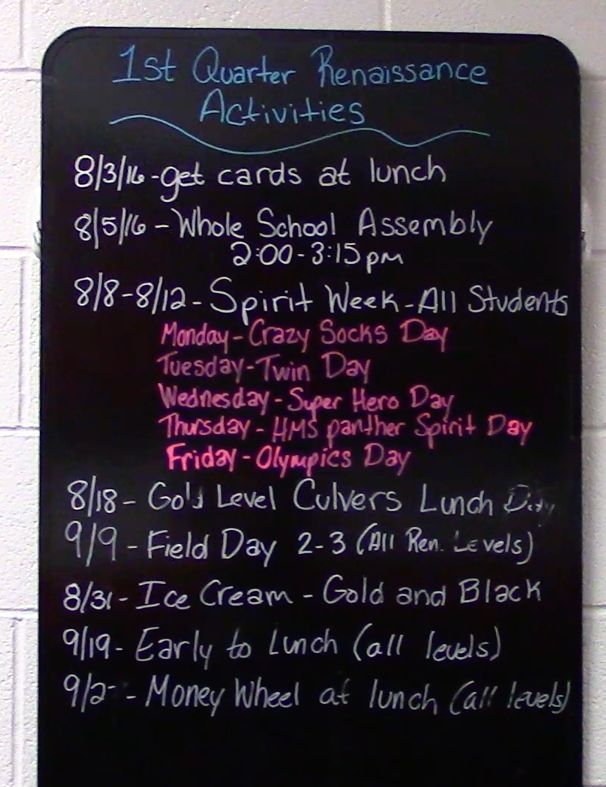 1st Quarter Renaissance
Activities
8/3/16-get cards at lunch
8/5/16-Whole School Assembly
2:00-3:15pm
8/8-8/12-Spirit Week-All Students
Monday-Crazy Socks Day
Tuesday-Twin Day
Wednesday-Super Hero Day
Thursday-HMS panther Spirit Day
Friday-Olympics Day
8/18-Gold Level Culvers Lunch Day
9/9-Field Day 2-3 (All Ren. Levels)
8/31-Ice Cream-Gold and Black
9/19-Early to Lunch (all levels)
-Money Wheel at lunch (all levels)